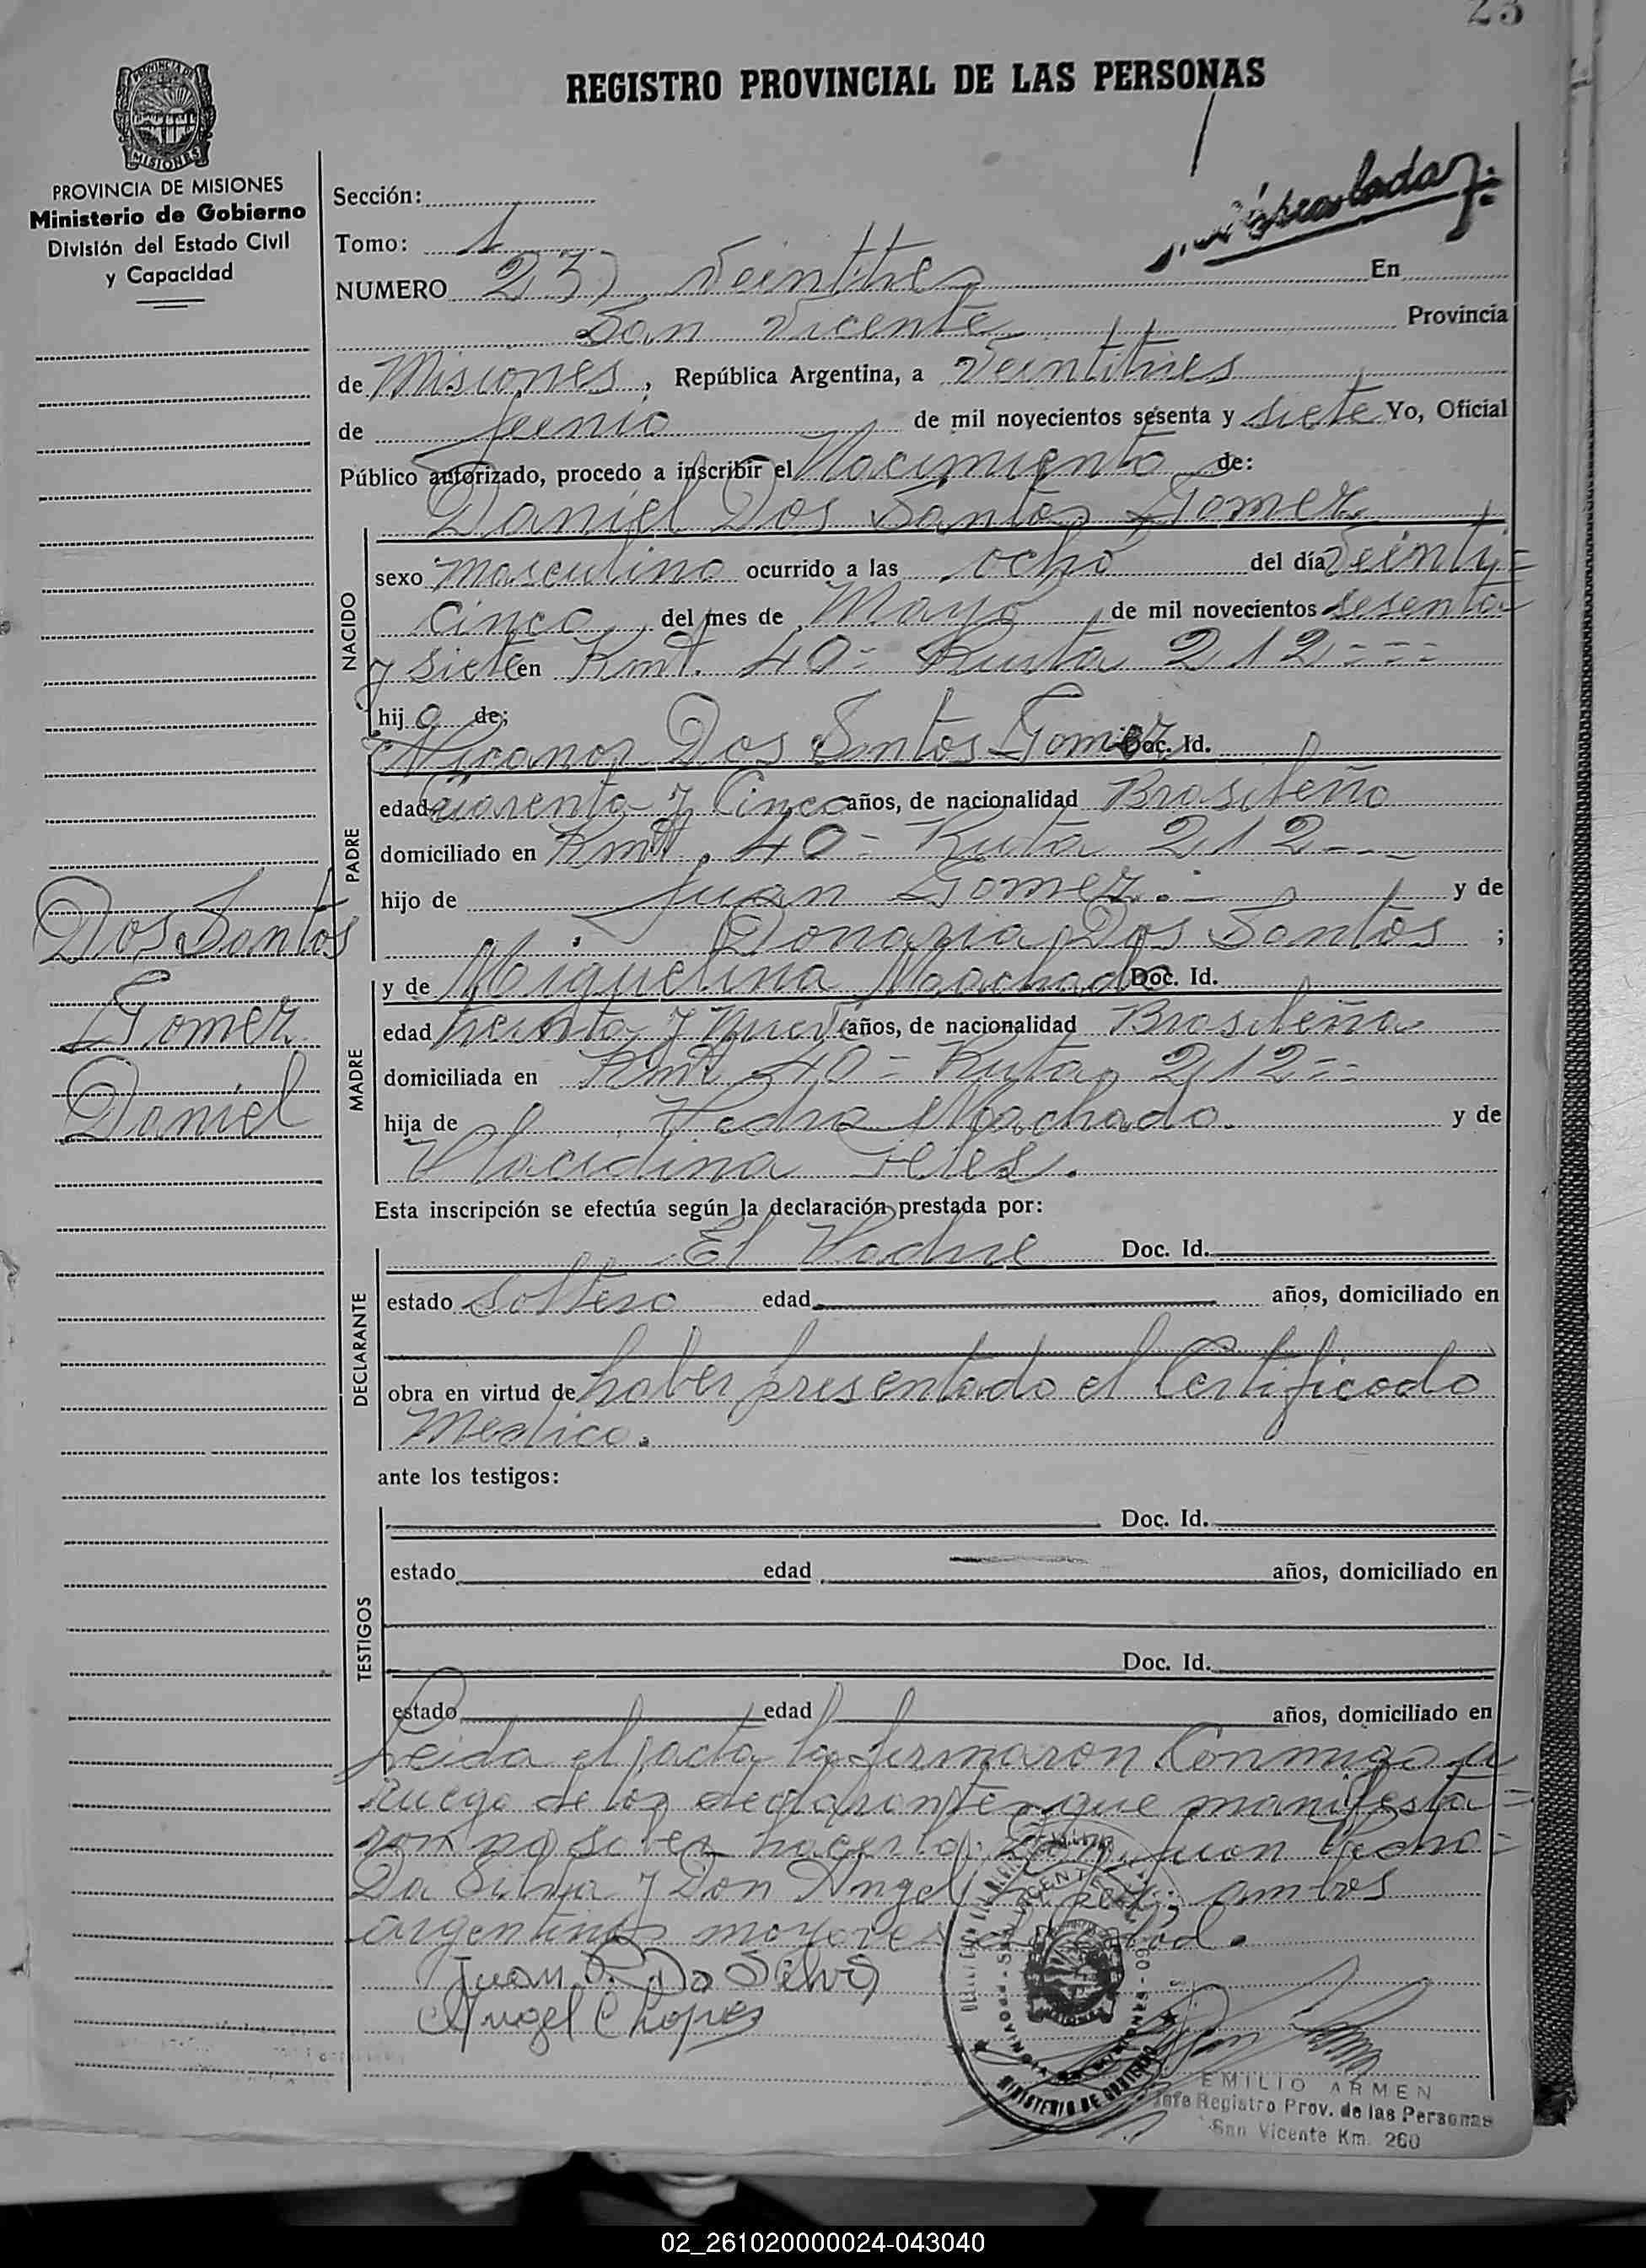 23
REGISTRO PROVINCIAL DE LAS PERSONAS
PROVINCIA DE
MISIONES
PROVINCIA DE MISIONES
Ministerio de Gobierno
División del Estado Civil
y Capacidad
Sección:
Tomo: 1
NUMERO 23) Veintitres En
San Vicente Provincia
de Misiones, República Argentina, a Veintitres
de Junio de mil novecientos sesenta y siete Yo, Oficial
Público autorizado, procedo a inscribir el Nacimiento de:
Daniel Dos Santos Gomez
NACIDO
sexo masculino ocurrido a las ocho del día Veinti=
cinco del mes de Mayo de mil novecientos sesenta
y siete en Kmt. 40= Ruta 212=--
hijo de;
PADRE
Nicanor Dos Santos Gomez Doc. Id.
edad Cuarenta y Cinco años, de nacionalidad Brasileño
domiciliado en Kmt. 40= Ruta 212---
hijo de Juan Gomez.- y de
Donaria Dos Santos ;
MADRE
y de Miquelina Machado Doc. Id.
edad treinta y Nueve años, de nacionalidad Brasileña
domiciliada en Kmt 40= Ruta 212=-
hija de Pedro Machado. y de
Placidina Teles.
Dos Santos
Gomez
Daniel
Esta inscripción se efectúa según la declaración prestada por:
DECLARANTE
El Padre Doc. Id.
estado Soltero edad años, domiciliado en
obra en virtud de haber presentado el Certificado
Medico.
ante los testigos:
TESTIGOS
Doc. Id.
estado edad años, domiciliado en
Doc. Id.
estado edad años, domiciliado en
Leida el acta la firmaron Conmigo a
ruego de los declarantes que manifesta=
ron no saber hacerlo: Don Juan Pedro=
Da Silva y Don Angel ambos
argentinos mayores de edad.
Juan P. Da Silva
Angel C Lopes
MINISTERIO DE GOBIERNO
EMILIO ARMEN
Jefe Registro Prov. de las Personas
San Vicente Km. 260
02_261020000024-043040